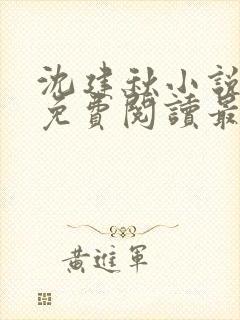 沈建秋小說
免費閱讀最
黃進軍